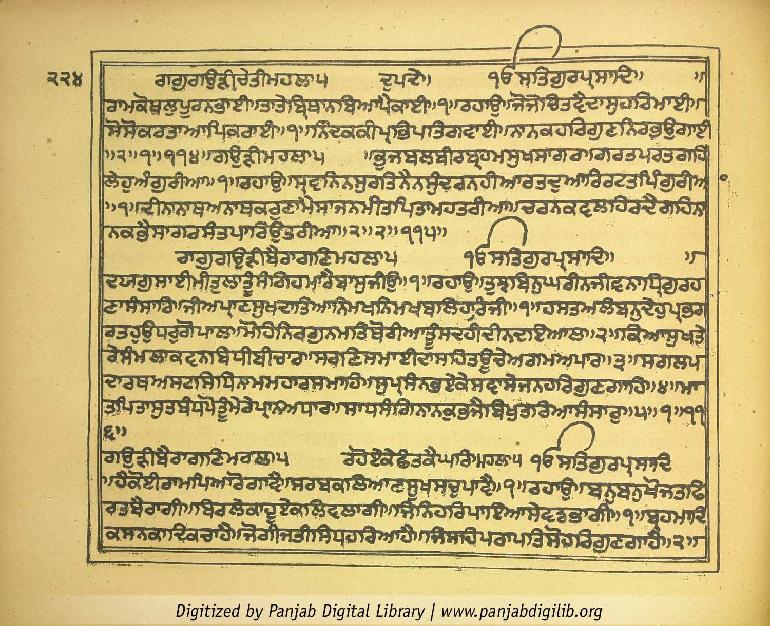 ੨੨੪
ਰਾਗੁਗਉੜੀਚੇਤੀਮਹਲਾ੫ ਦੁਪਦੇ॥ ੴਸਤਿਗੁਰਪ੍ਰਸਾਦਿ॥ ॥
ਰਾਮਕੋਬਲੁਪੂਰਨਭਾਈ॥ਤਾਤੇਬ੍ਰਿਥਾਨਬਿਆਪੈਕਾਈ॥੧॥ਰਹਾਉ॥ਜੋਜੋਚਿਤਵੈਦਾਸੁਹਰਿਮਾਈ॥
ਸੋਸੋਕਰਤਾਆਪਿਕਰਾਈ॥੧॥ਨਿੰਦਕਕੀਪ੍ਰਭਿਪਤਿਗਵਾਈ॥ਨਾਨਕਹਰਿਗੁਣਨਿਰਭਉਗਾਈ
॥੨॥੧॥੧੧੪॥ਗਉੜੀਮਹਲਾ੫ ॥ਭੁਜਬਲਬੀਰਬ੍ਰਹਮਸੁਖਸਾਗਰਗਰਤਪਰਤਗਹਿ
ਲੇਹੁਅੰਗੁਰੀਆ॥੧॥ਰਹਾਉ॥ਸ੍ਰਵਨਿਨਸੁਰਤਿਨੈਨਸੁੰਦਰਨਹੀਆਰਤਦੁਆਰਿਰਟਤਪਿੰਗੁਰੀਆ
॥੧॥ਦੀਨਾਨਾਥਅਨਾਥਕਰੁਣਾਮੈਸਾਜਨਮੀਤਪਿਤਾਮਹਤਰੀਆ॥ਚਰਨਕਵਲਹਿਰਦੈਗਹਿਨਾ
ਨਕਭੈਸਾਗਰਸੰਤਪਾਰਿਉਤਰੀਆ॥੨॥੨॥੧੧੫॥
ਰਾਗੁਗਉੜੀਬੈਰਾਗਣਿਮਹਲਾ੫ ੴਸਤਿਗੁਰਪ੍ਰਸਾਦਿ॥ ॥
ਦਯਗੁਸਾਈਮੀਤੁਲਾਤੂੰਸੰਗਿਹਮਾਰੈਬਾਸੁਜੀਉ॥੧॥ਰਹਾਉ॥ਤੁਝਬਿਨੁਘਰੀਨਜੀਵਨਾਧ੍ਰਿਗੁਰਹ
ਣਾਸੰਸਾਰਿ॥ਜੀਅਪ੍ਰਾਣਸੁਖਦਾਤਿਆਨਿਮਖਨਿਮਖਬਲਿਹਾਰਿਜੀ॥੧॥ਹਸਤਅਲੰਬਨੁਦੇਹੁਪ੍ਰਭਗ
ਰਤਹੁਉਧਰੁਗੋਪਾਲ॥ਮੋਹਿਨਿਰਗੁਨਮਤਿਥੋਰੀਆਤੂੰਸਦਹੀਦੀਨਦਇਆਲ॥੨॥ਕਿਆਸੁਖਤੇ
ਰੇਸੰਮਲਾਕਵਨਬਿਧੀਬੀਚਾਰ॥ਸਰਣਿਸਮਾਈਦਾਸਹਿਤਊਚੇਅਗਮਅਪਾਰ॥੩॥ਸਗਲਪ
ਦਾਰਥਅਸਟਸਿਧਿਨਾਮਮਹਾਰਸਮਾਹਿ॥ਸੁਪ੍ਰਸੰਨਭਏਕੇਸਵਾਸੇਜਨਹਰਿਗੁਣਗਾਹਿ॥੪॥ਮਾ
ਤਪਿਤਾਸੁਤਬੰਧਪੋਤੂੰਮੇਰੇਪ੍ਰਾਨਅਧਾਰ॥ਸਾਧਸੰਗਿਨਾਨਕੁਭਜੈਬਿਖੁਤਰਿਆਸੰਸਾਰੁ॥੫॥੧॥੧੧
੬॥
ਗਉੜੀਬੈਰਾਗਣਿਮਹਲਾ੫ ਰਹੋਏਕੇਛੰਤਕੈਘਰਿਮਹਲਾ੫ ੴਸਤਿਗੁਰਪ੍ਰਸਾਦਿ
॥ਹੈਕੋਈਰਾਮਪਿਆਰੋਗਾਵੈ॥ਸਰਬਕਲਿਆਣਸੂਖਸਚੁਪਾਵੈ॥੧॥ਰਹਾਉ॥ਬਨੁਬਨੁਖੋਜਤਫਿ
ਰਤਬੈਰਾਗੀ॥ਬਿਰਲੇਕਾਹੂਏਕਲਿਵਲਾਗੀ॥ਜਿਨਿਹਰਿਪਾਇਆਸੇਵਡਭਾਗੀ॥੧॥ਬ੍ਰਹਮਾਦਿ
ਕਸਨਕਾਦਿਕਚਾਹੈ॥ਜੋਗੀਜਤੀਸਿਧਹਰਿਆਹੈ॥ਜਿਸਹਿਪਰਾਪਤਿਸੋਹਰਿਗੁਣਗਾਹੈ॥੨॥
Digitized by Panjab Digital Library | www.panjabdigilib.org